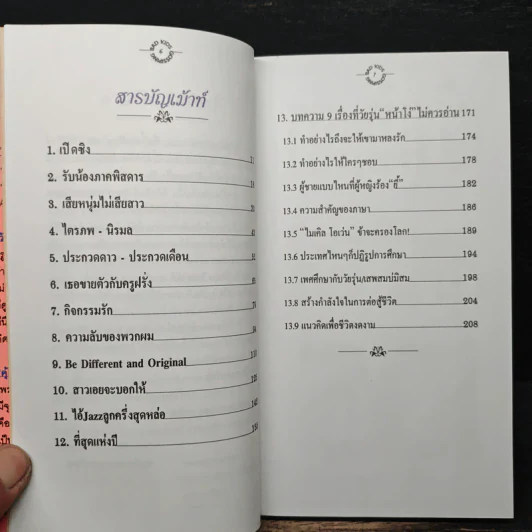 BAD KIDS
6
สารบัญเม้าท์
1. เปิดซิง
2. รับน้องภาคพิสดาร
3. เสียหนุ่มไม่เสียสาว
4. ไตรภพ - นิรมล
5. ประกวดดาว - ประกวดเดือน
6. เธอขายตัวกับครูฝรั่ง
7. กิจกรรมรัก
8. ความลับของพวกผม
9. Be Different and Original
10. สาวเอยจะบอกให้
11. ไอ้Jazzลูกครึ่งสุดหล่อ
12. ที่สุดแห่งปี
BAD KIDS
7
13. บทความ 9 เรื่องที่วัยรุ่น"หน้าโง่"ไม่ควรอ่าน 171
13.1 ทำอย่างไรถึงจะให้เขามาหลงรัก 174
13.2 ทำอย่างไรให้ใครๆชอบ 178
13.3 ผู้ชายแบบไหนที่ผู้หญิงร้อง"อี๊" 182
13.4 ความสำคัญของภาษา 186
13.5 "ไมเคิล โอเว่น" ข้าจะครองโลก! 189
13.6 ประเทศไหนๆก็ปฏิรูปการศึกษา 194
13.7 เพศศึกษากับวัยรุ่นเสพสมบ่มิสม 198
13.8 สร้างกำลังใจในการต่อสู้ชีวิต 204
13.9 แนวคิดเพื่อชีวิตงดงาม 208